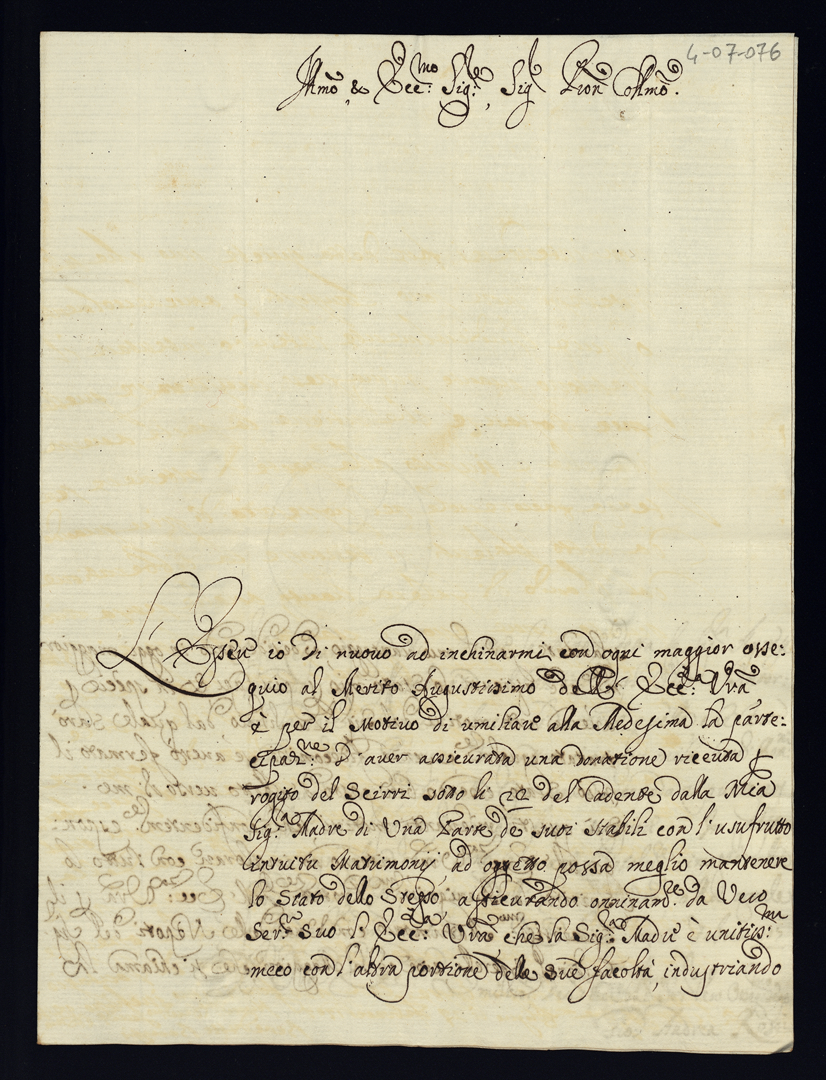 4-07-076
Jllmõ, & Ecc:mo Sig:re, Sig:r Pron Collmõ.
L'Esser io di nuovo ad inchinarmi con ogni maggior osse:
quio al Merito Augustissimo dell' Ecc:za Vrã
è per il Motivo di umiliare alla Medesima la parte:
cipaz:ne d'aver assicurata una donatione ricevuta
rogito del Scirri sotto li 22 del Cadente dalla Mia
Sig:ra Madre di Una Parte de suoi Stabili con l'usufrutto
intuitu Matrimonij, ad oggetto possa meglio mantenere
lo Stato dello Stesso, assicurando onninam:te da Vero
Ser:re Suo l'Ecc:za Vrã che la Sig:ra Madre è unitiss:ma
meco con l'altra portione delle Sue facoltà, industriando